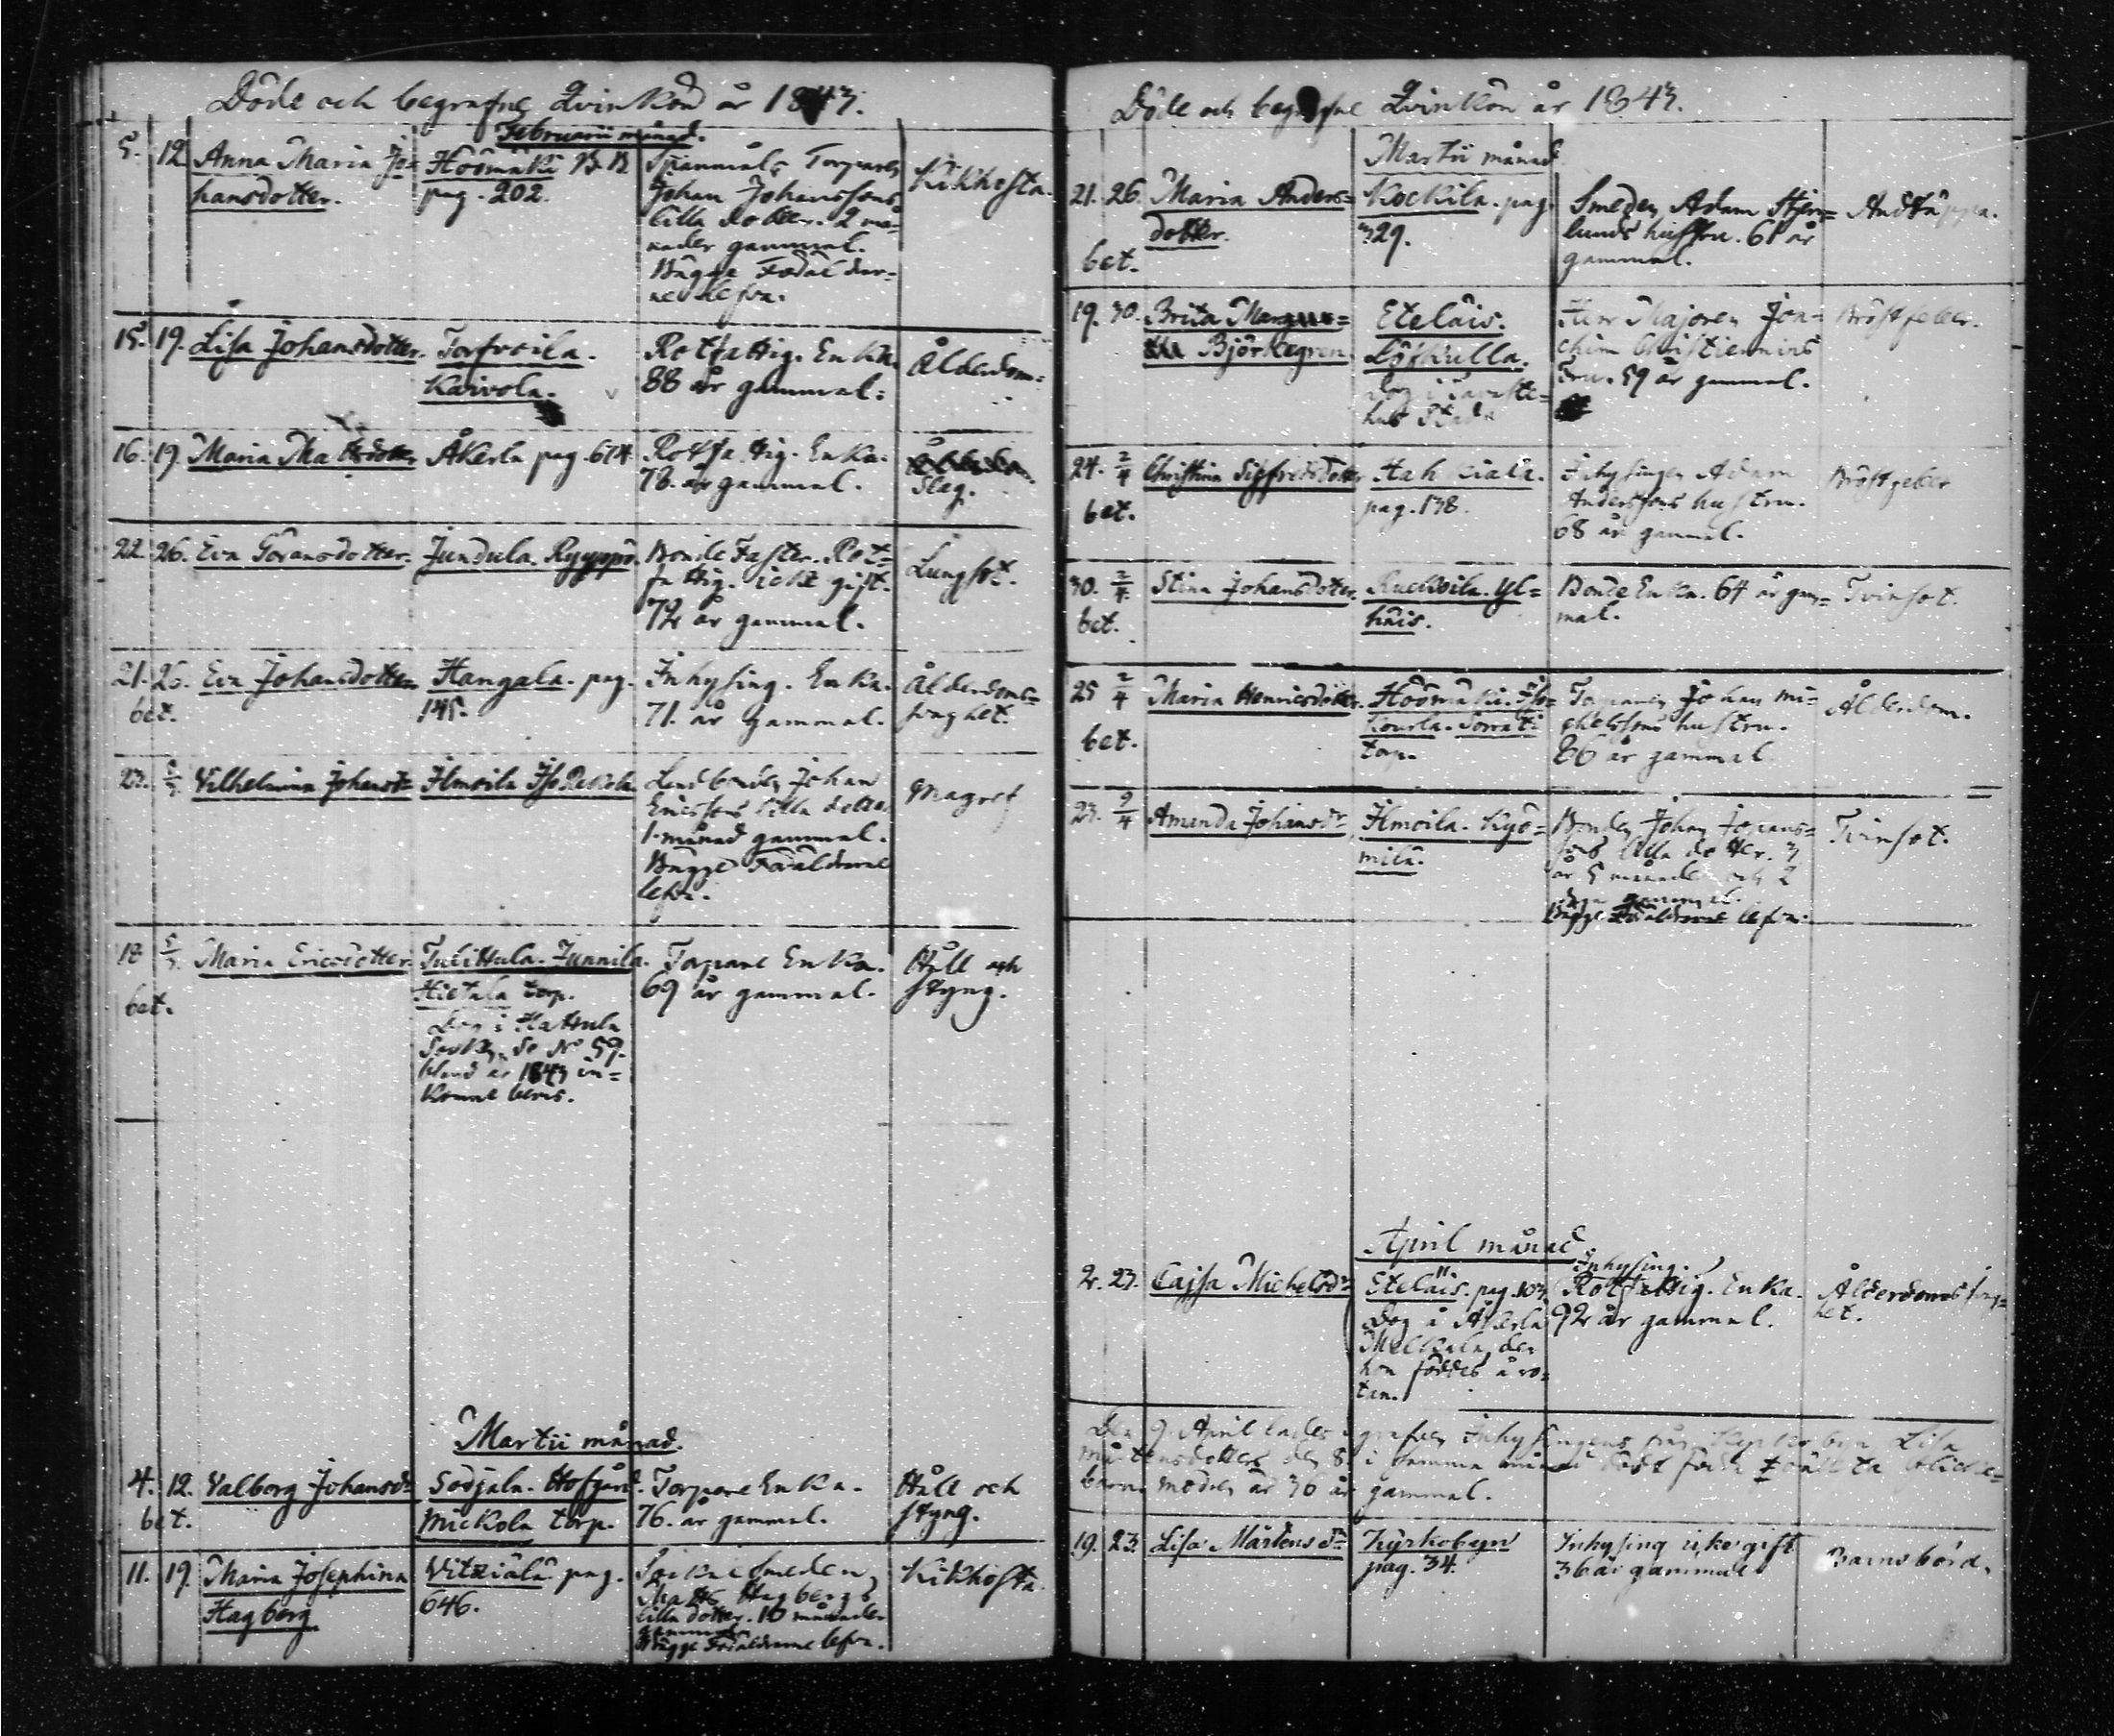 Döde och begrafne Qvinkön år 1843.
Februarii månad.
5. 12. Anna Maria Jo=
hansdotter.
Hoömäki
pag. 202.
Torparen
Johan Johanssons
lilla dotter. 2 må=
nader gammal.
Bägge Föräldrar=
ne lefva.
Kikhosta.
15. 19. Lisa Johansdotter.
Torfvoila.
Kaivola.
Rotfattig. Enka.
88 år gammal.
Ålderdom.
16. 19. Maria Mattsdotter
Åkerla pag. 674
Rotfattig. Enka.
78. år gammal.
Slag.
22. 26. Eva Göransdotter.
Jundula. Ryyppö.
Bonde Faster. Rot=
fattig. icke gift.
72 år gammal.
Lungsot.
21. 26. Eva Johansdotter
bet.
Hangala. pag.
145.
Inhysing. Enka.
71. år gammal.
Ålderdoms=
svaghet.
23. 5/3. Vilhelmina Johansd=
Ilmoila Iso Rekola
Landbonden Johan
Ericssons lilla dotter
1. månad gammal.
Bägge Föräldrarne
lefva.
Magref
18 5/3. Maria Ericsdotter.
bet.
Tulittula. Junnila.
Hietala torp.
Dog i Hattula
Sockn, Se No 59.
bland år 1843 in=
komne bevis.
Torpare Enka.
69 år gammal.
Håll och
styng.
Martii månad.
4. 12. Valborg Johansdr
bet.
Södjala. Hofgård.
Mickola torp.
Torpare Enka.
76. år gammal.
Håll och
styng.
11. 19. Maria Josephina
Hagberg
Vitziälä. pag.
646.
Sockne Smeden
Matts Hagbergs
lilla dotter. 10 månader
gammal.
Bägge Föräldrarne lefva.
Kikhosta.
Döde och begrafne Qvinkön år 1843.
Martii månad
21. 26. Maria Anders=
dotter.
bet.
Kockila. pag.
329.
Smeden Adam Stjern=
lunds hustru. 61 år
gammal.
Andtäppa.
19. 30. Brita Margare=
tha Björkegren.
Eteläis.
Löfkulla.
Dog i Tavaste=
hus Stad.
Herr Majoren Joa=
chim Christiernins
Fru. 59 år gammal.
Bröstfeber.
24. 2/4 Christina Sigfredsdotter
bet.
Hahkiala.
pag. 138.
Inhysingen Adam
Anderssons hustru.
68 år gammal.
Bröstfeber
30. 2/4. Stina Johansdotter.
bet.
Ruckoila. Yl=
häis.
Bonde Enka. 64 år gam=
mal.
Tvinsot.
25 2/4 Maria Henricsdotter.
bet.
Hoömäki. Iso=
kourla. Sorrati
torp.
Torparen Johan Mi=
chelssons hustru.
86 år gammal
Ålderdom.
23. 9/4 Amanda Johansdr
Ilmoila. Kyö=
milä.
Bonden Johan Johans=
sons lilla dotter. 3
år 5 månader och 2
dagar gammal.
Bägge Föräldrarne lefva.
Tvinsot.
April månad
2. 23. Cajsa Michelsdr
Eteläis. pag. 103.
Dog i Åkerla
Melkala, der
hon föddes å ro=
ten.
Inhysing.
Rotfattig. Enka.
92 år gammal.
Ålderdoms svag=
het.
Den 9. April lades i grafven Inhysingens från Kyrkobyn Lisa
Mårtensdotters den 8. i samma månad dödt födda oäkta flicke=
barn. modern är 36 år gammal.
19. 23. Lisa Mårtensdr
Kyrkobyn
pag. 34.
Inhysing icke gift
36 år gammal
Barnsbörd.